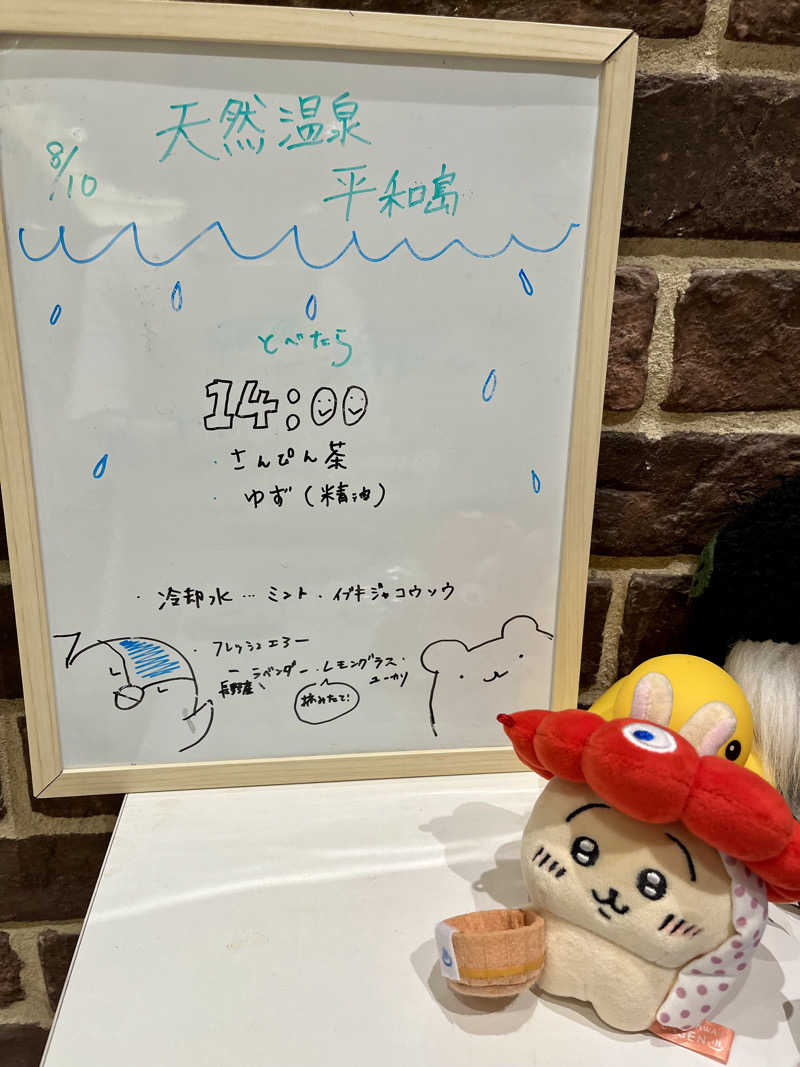 8/10
天然温泉
平和島
とべたら
14:00
・さんぴん茶
・ゆず(精油)
・冷却水…ミント・イブキジャコウソウ
・フレッシュエアー
ーラベンダー・レモングラス・
ユーカリ
長野産
摘みたて!